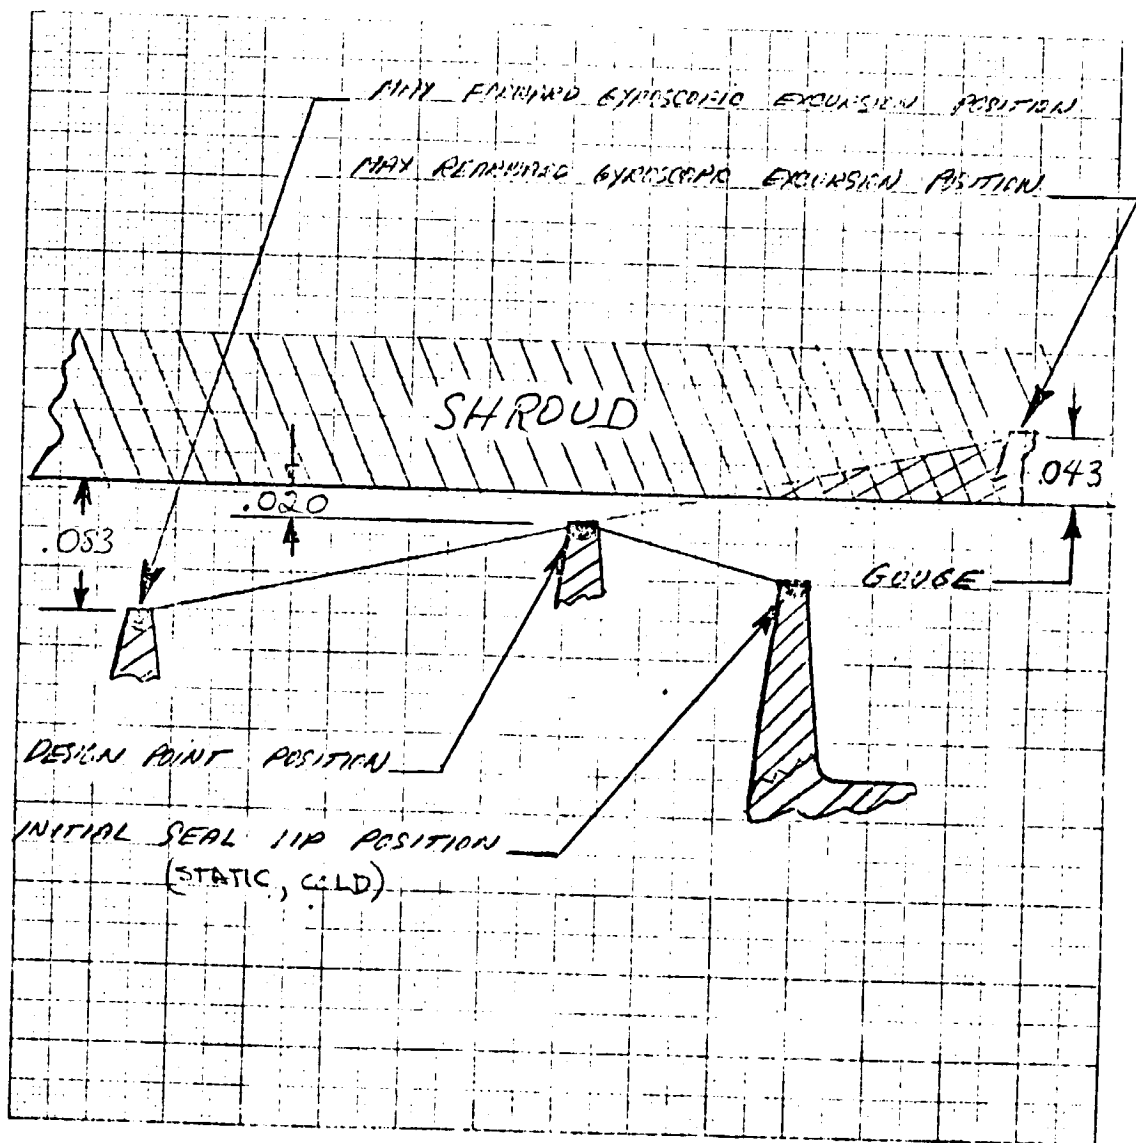 MAX FORWARD GYROSCOPIC EXCURSION POSITION
MAX REARWARD GYROSCOPIC EXCURSION POSITION
SHROUD
.043
.020
.083
GOUGE
DESIGN POINT POSITION
INITIAL SEAL LIP POSITION
(STATIC, COLD)